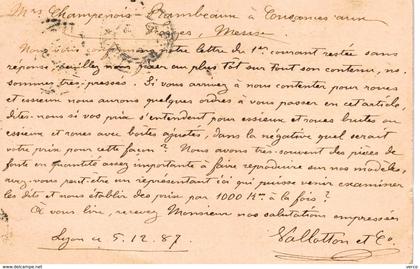 Mrs Champenois-Rambeaux à Cousances aux
Forges, Meuse
Nous vous confirmons notre lettre du 1er courant restée sans
réponse, veuillez nous fixer au plus tôt sur tout son contenu, ns.
sommes très-pressés. Si vous arrivez à nous contenter pour roues
et essieux nous aurons quelques ordres à vous passer en cet article,
dites-nous si vos prix s'entendent pour essieux et roues brutes ou
essieux et roues avec boîtes ajustées, dans la négative quel serait
votre prix pour cette façon? Nous avons très-souvent des pièces de
fonte en quantité assez importante à faire reproduire sur nos modèles,
avez-vous peut-être un représentant ici qui puisse venir examiner
les dits et nous établir des prix par 1000 Ks. à la fois?
A vous lire, recevez Monsieur nos salutations empressées
Lyon le 5.12.87. Vallotton et Co.
delcampe.net